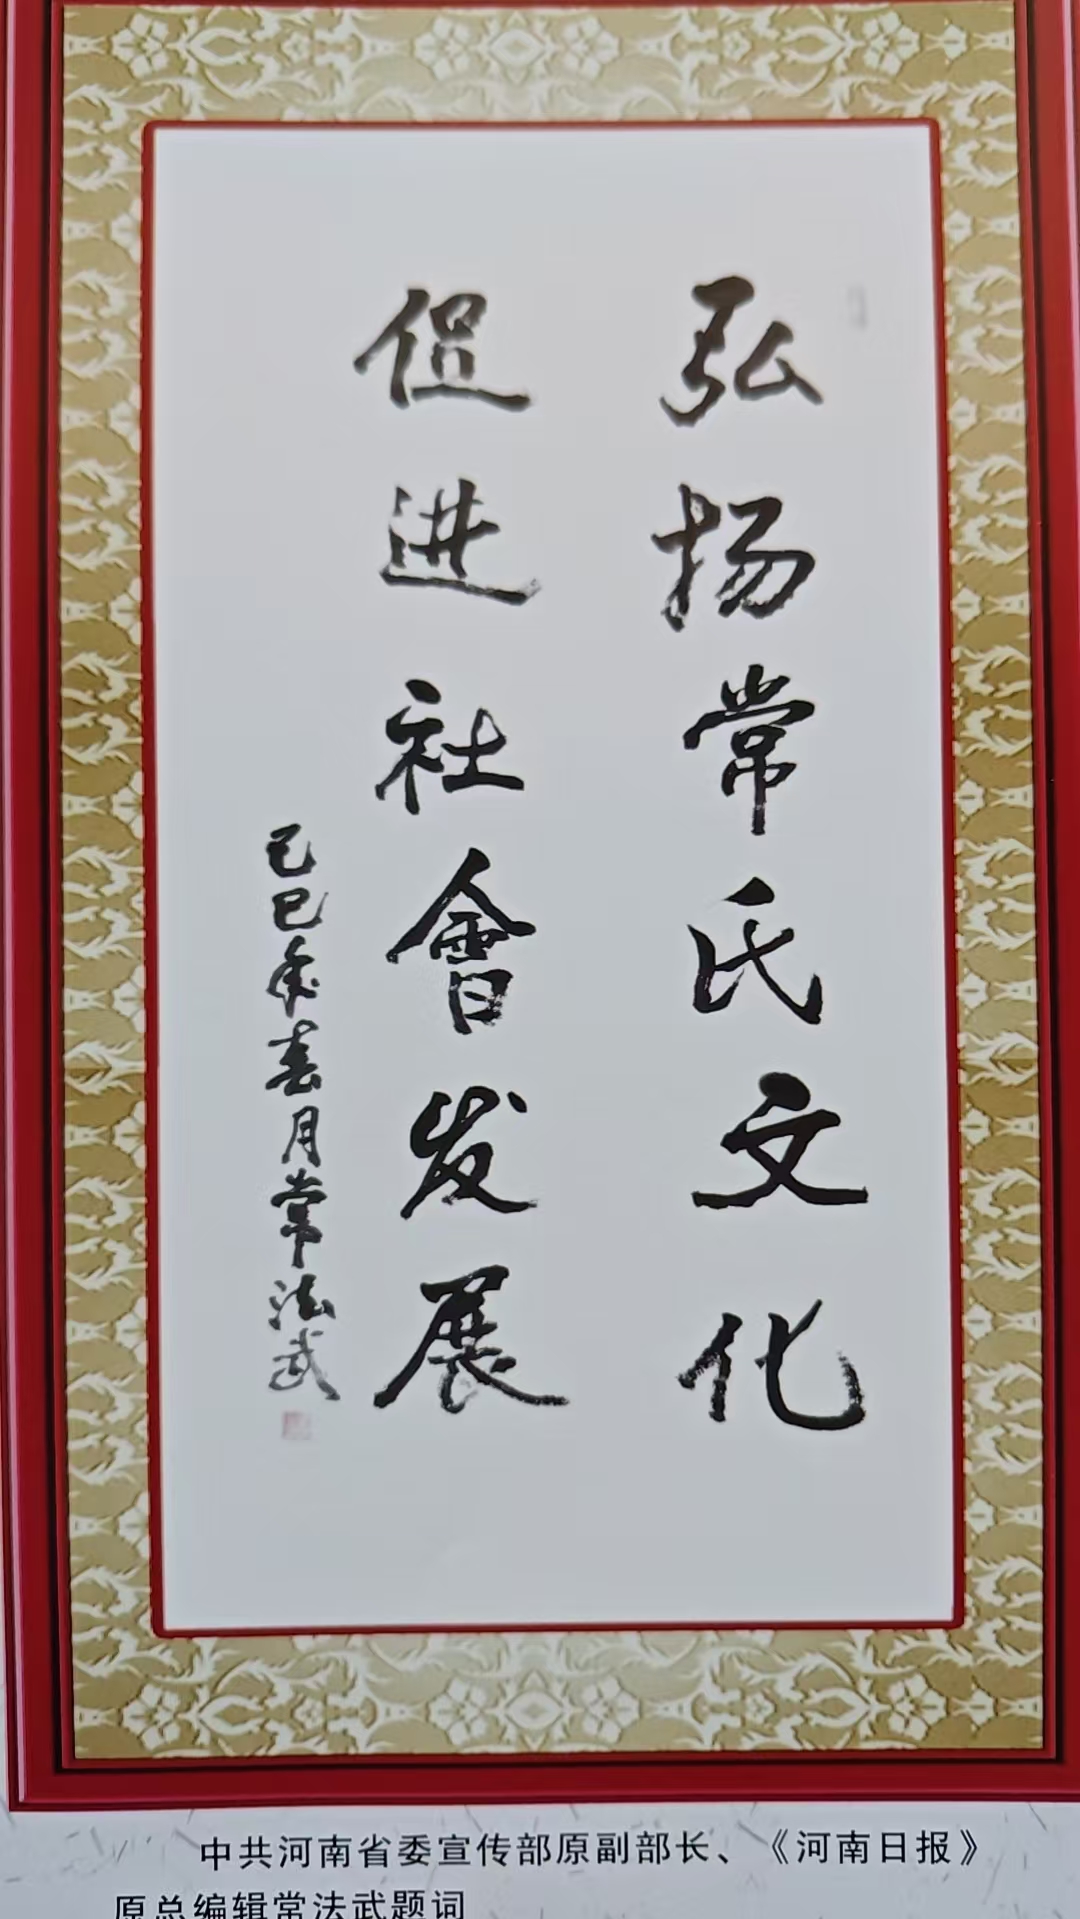 弘扬常氏文化
促进社會发展
己巳年春月常法武
中共河南省委宣传部原副部长、《河南日报》
原总编辑常法武题词